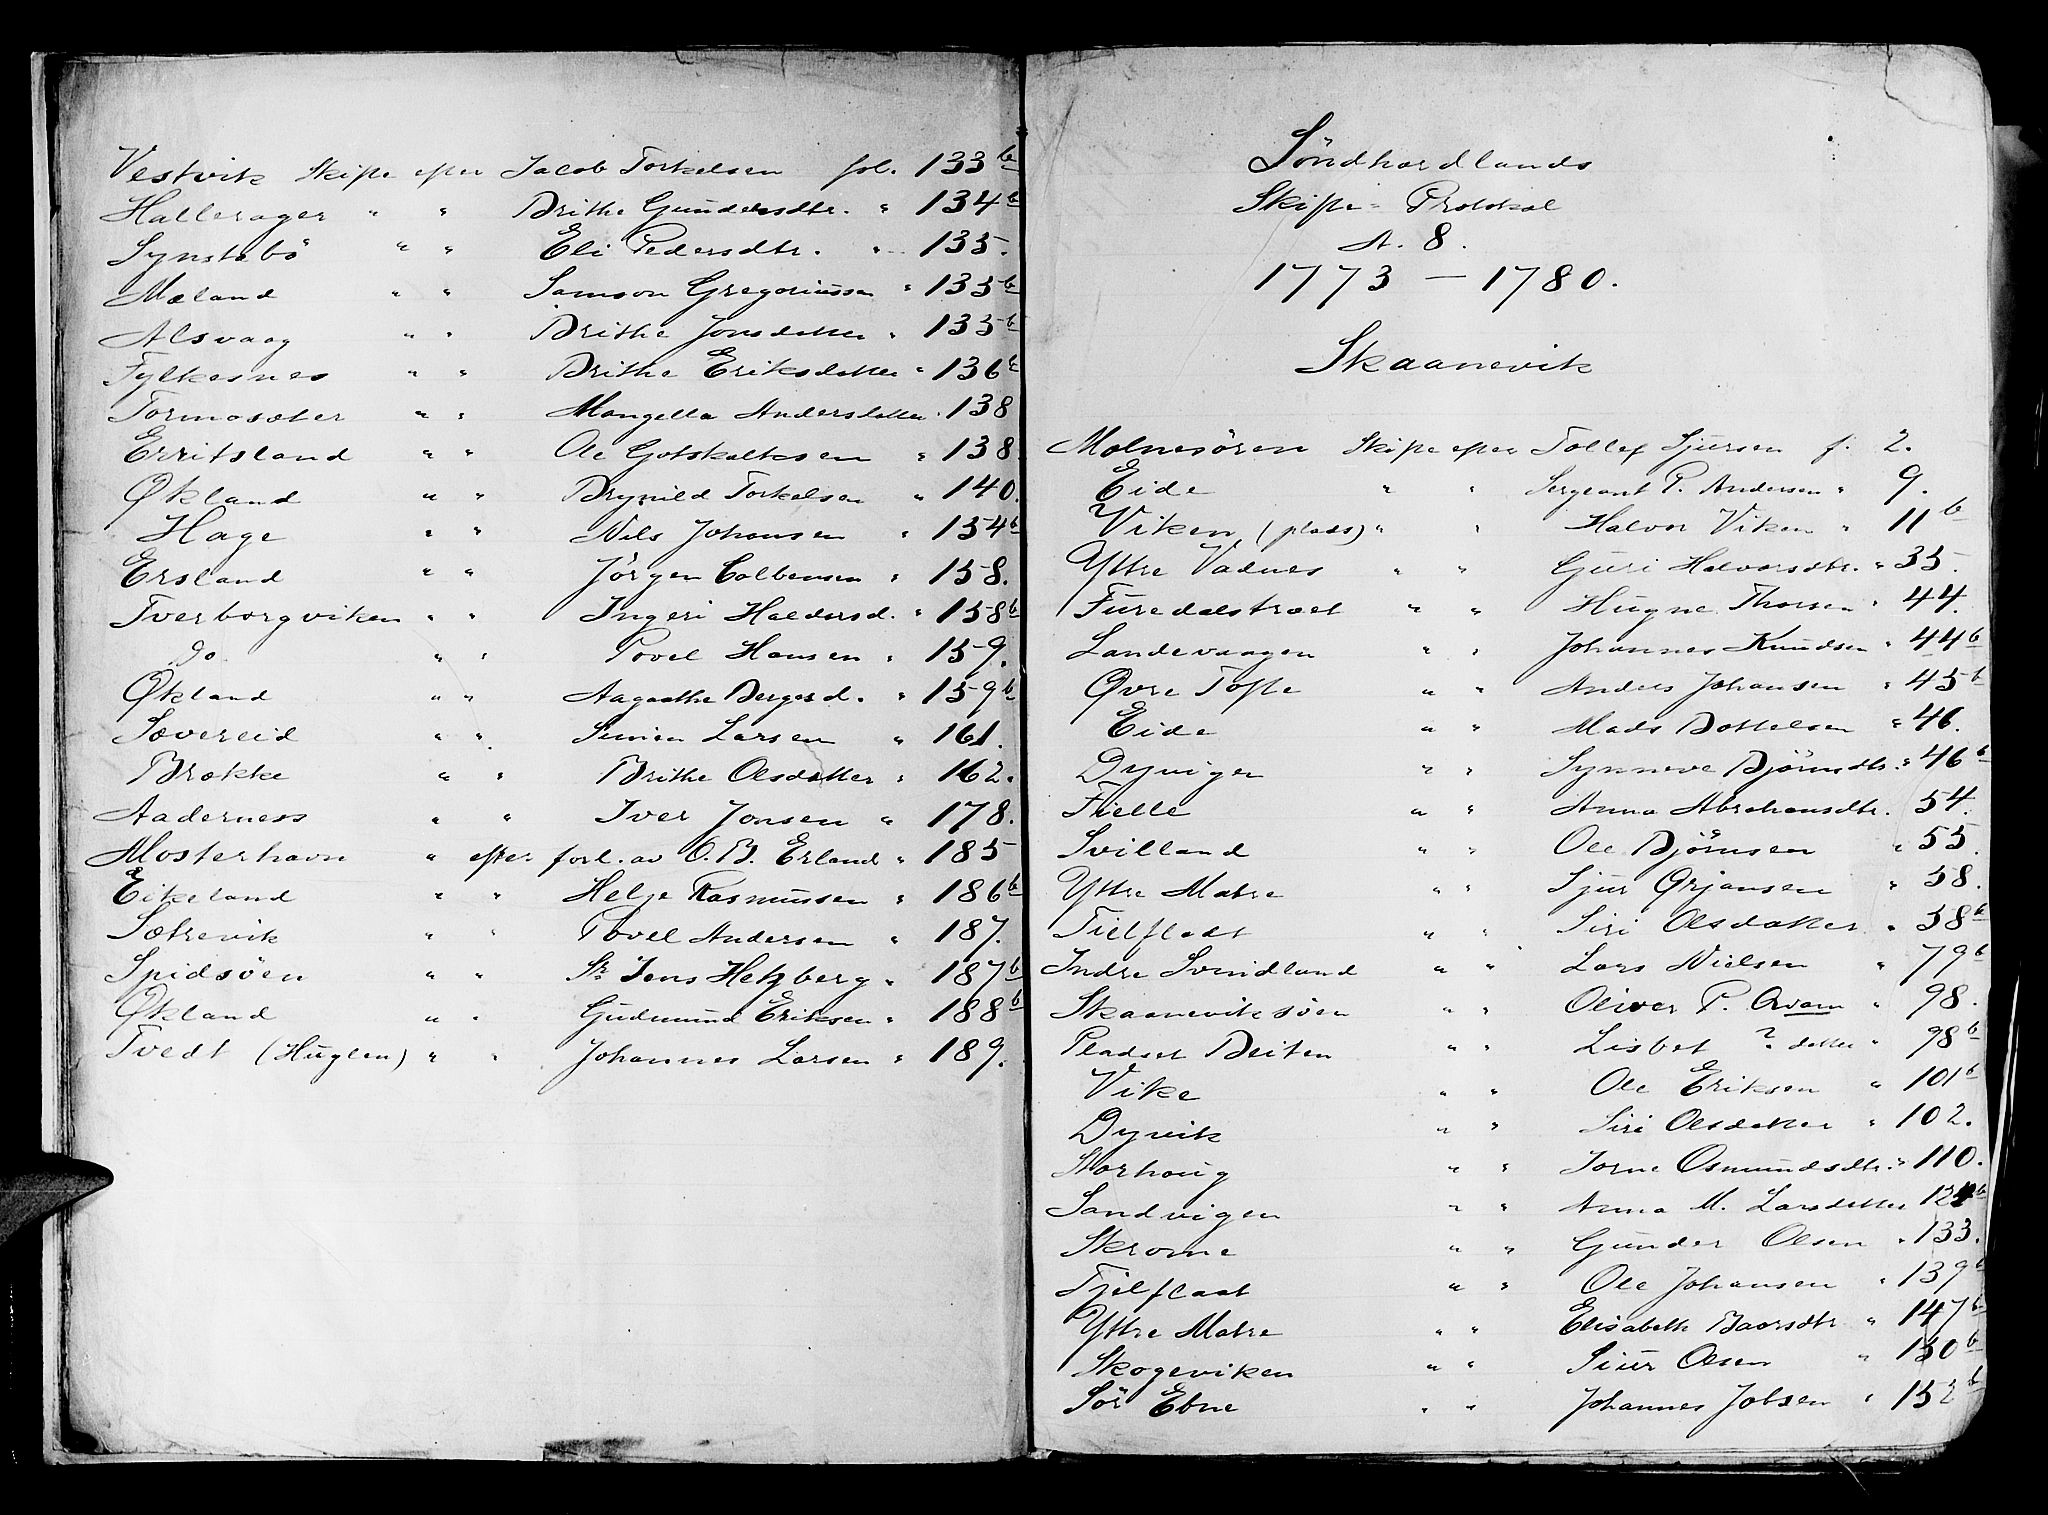 Vestvik Skifte efter Jacob Torkelsen fol. 133b
Hallerager " " Brithe Gundersdtr. " 134b
Synstebö " " Eli Pedersdtr. " 135.
Mæland " " Samson Gregoriussen " 135b
Alsvaag " " Brithe Jonsdatter " 135b
Fylkesnes " " Brithe Eriksdatter " 136b
Tormosæter " " Mangella Andersdatter. 138
Erritsland " " Ole Gotskalksen " 138
Økland " " Brynild Torkelsen " 140.
Hage " " Nils Johansen " 154b
Ersland " " Jörgen Colbensen " 158.
Tverborgviken " " Ingeri Haldorsd. " 158b
do " " Povel Hansen " 159.
Økland " " Aagaathe Bergesd. " 159b
Sævereid " " Simen Larsen " 161.
Brekke " " Brithe Olsdatter " 162.
Aaderness " " Iver Jonsen " 178.
Mosterhavn " efter forl. av O. B. Erland " 185
Eikeland " " Helje Rasmussen " 186b
Sætrevik " " Povel Andersen " 187.
Spidsöen " " Sr Jens Hetzberg " 187b
Økland " " Gudmund Eriksen " 188b
Tvedt (Huglen) " " Johannes Larsen " 189.
Söndhordlands
Skifte-Protokol
A. 8.
1773 — 1780.
Skaanevik
Molnesören Skifte efter Tollef Sjursen f. 2.
Eide " " Sergeant P. Andersen " 9.
Viken (plads) " " Halvor Viken " 11b
Yttre Vadnes " " Guri Halvorsdtr. " 35.
Furedalstræet " " Hugne Thorsen " 44.
Landevaagen " " Johannes Knudsen " 44b
Øvre Tofte " " Anders Johansen " 45b
Eide " " Mads Bottelsen " 46.
Dyvigen " " Synneve Björnsdtr. " 46b
Fielle " " Anna Abrahamsdtr. 54.
Svilland " " Ole Björnsen " 55.
Yttre Matre " " Sjur Ørjansen " 58.
Tielfladt " " Siri Olsdatter " 58b
Indre Svindland " " Lars Nielsen " 79b
Skaaneviksöen " " Oliver P. Qvam " 98.
Pladset Beiten " " Lisbet ? datter " 98b
Vike " " Ole Eriksen " 101b
Dyvik " " Siri Olsdatter " 102.
Storhoug " " Jorne Osmundsdtr. " 110.
Sandvigen " " Anna M. Larsdatter 124b
Skrome " " Gunder Olsen " 133.
Tjelflaat " " Ole Johansen " 139b
Yttre Matre " " Elisabeth Baarsdtr " 147b
Skogeviken " " Siur Olsen " 150b
Sör Ebne " " Johannes Jobsen " 152b